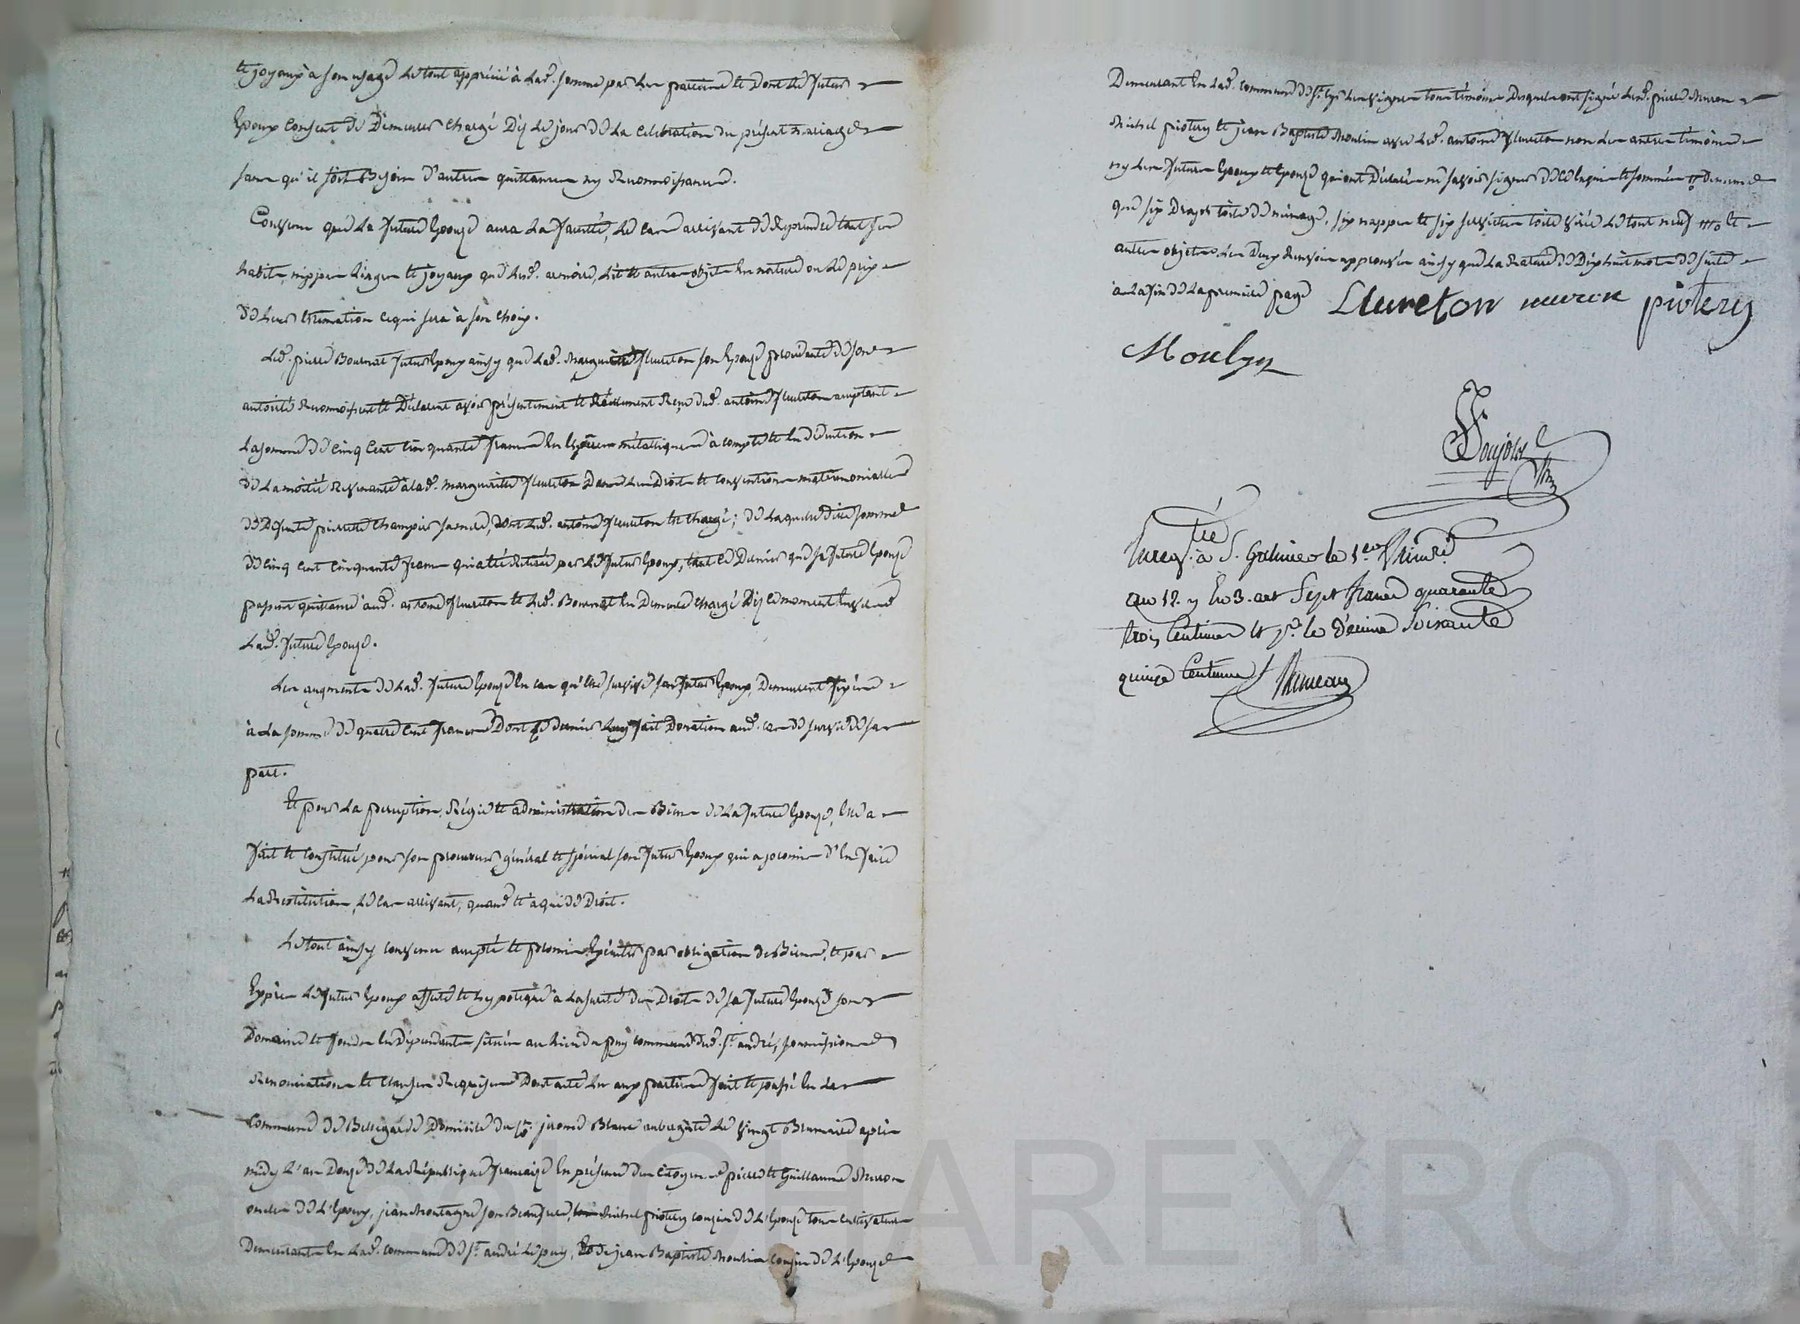 et joyaux à son usage le tout apprécié à lad. somme par les parties et dont led. futur
Epoux consent de demeurer chargé dès le jour de la celebration du présent mariage
sans qu'il soit besoin d'autres quittances ny reconnoissances.
Convenu que la future Epouse aura la faculté, le cas arrivant de reprendre tout ses
habits, nippes linges et joyaux que lesd. armoire, lit et autres objets en nature ou le prix
de leur estimation ce qui sera à son choix.
Led. pierre Bournat futur Epoux ainsy que lad. marguerite fleureton son Epouse procédante de son
autorité reconnoissent et déclarent avoir présentement et réellement reçu dud. antoine fleureton acceptant
la somme de cinq cent cinquante francs en Espèces métalliques à compte et en déduction
de la moitié revenante à lad. marguerite fleureton dans les droits et conventions matrimoniales
de défunte pierrette champier sa mère, dont led. antoine fleureton est chargé; de laquelle dite somme
de cinq cent cinquante francs qui a été retirée par led. futur Epoux, tant ce dernier que sa future Epouse
passent quittance aud. antoine fleureton et led. Bournat en demeure chargé dès ce moment envers
lad. future Epouse.
Les augments de lad. future Epouse en cas qu'elle survive son futur Epoux, demeurent fixés
à la somme de quatre cent francs dont ce dernier luy fait donation aud. cas de survie de sa
part.
Et pour la perception, régie et administration des Biens de la future Epouse, elle a
fait et constitué pour son procureur général et spécial son futur Epoux qui a promis d'en faire
la restitution, le cas arrivant, quand et à qui de droit.
Le tout ainsy convenu accepté et promis Exécuter par obligation de Biens, et par
Exprès led. futur Epoux affecte et hypoteque à la sureté des droits de sa future Epouse son
Domaine et fonds en dépendants situés au lieu du puy commune dud. St. andré, soumissions
Renonciations et clauses requises Dont acte lu aux parties fait et passé en la
Commune de Bellegarde Domicile du Sr. jerome Blanc aubergiste le vingt Brumaire après
midy l'an douze de la République française En présence des citoyens pierre et Guillaume Meron
oncles de l'Epoux, jean Montagne son Beaufrere, Michel piotery cousin de l'Epouse tous cultivateurs
demeurants en lad. commune de St. andré le puy, et de jean Baptiste Moulin cousin de l'Epouse
Demeurant en lad. commune de St. Cyr les vignes tous témoins desquels ont signé lesd. pierre Meron
Michel piotery et jean Baptiste Moulin avec led. antoine fleureton non les autres témoins
ny les futurs Epoux et Epouse qui ont déclaré ne savoir signer de ce Enquis et sommés
que six draps toile de ménage, six nappes et six serviettes toile le tout neuf
autres objets les deux renvois approuvés ainsy que la rature de
à la fin de la premiere page Lleureton meron piotery
Moulyn
Poujol
Enregtré à St. Galmier le 1er. frimre.
an 12. reçu sept francs quarante
trois Centimes et pr. le décime soixante
quinze Centimes
CHAREYRON